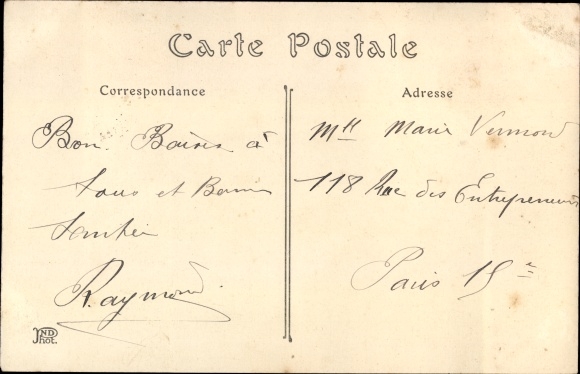 Carte Postale
Correspondance
Adresse
Bon Baisers à
tous et Bonne
Santée
Raymond
Mlle Marie Vermond
118 Rue des Entrepreneurs
Paris 15e
ND
Phot.